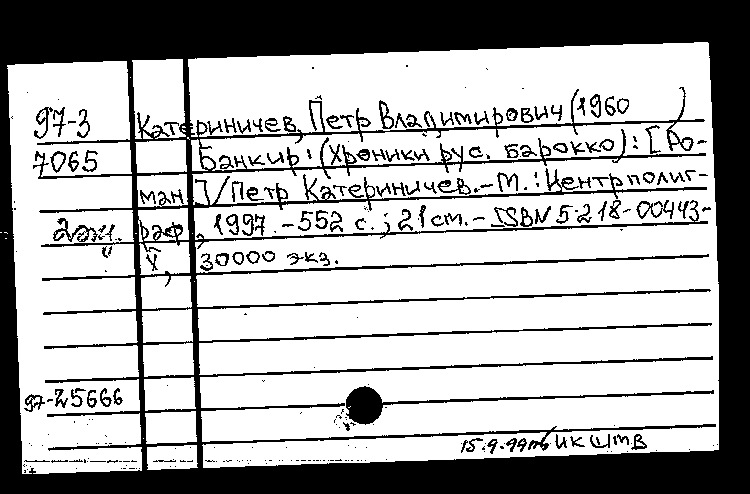 97-3 Катериничев, Петр Владимирович (1960 )
7065 Банкир: (Хроники рус. барокко): [Ро-
ман]/Петр Катериничев.-М.:Центрполиг-
2экз. раф, 1997.-552 с.; 21см.- ISBN 5-218-00443-
X, 30000 экз.
97-25666
15.9.99